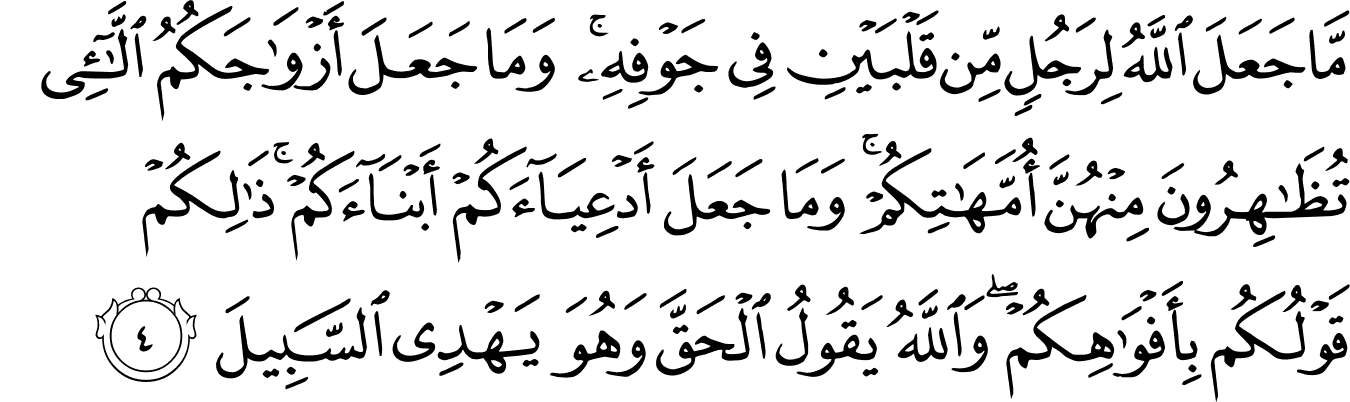 مَّا جَعَلَ ٱللَّهُ لِرَجُلٍ مِّن قَلْبَيْنِ فِى جَوْفِهِۦ ۚ وَمَا جَعَلَ أَزْوَٰجَكُمُ ٱلَّـٰٓـِٔى
تُظَـٰهِرُونَ مِنْهُنَّ أُمَّهَـٰتِكُمْ ۚ وَمَا جَعَلَ أَدْعِيَآءَكُمْ أَبْنَآءَكُمْ ۚ ذَٰلِكُمْ
قَوْلُكُم بِأَفْوَٰهِكُمْ ۖ وَٱللَّهُ يَقُولُ ٱلْحَقَّ وَهُوَ يَهْدِى ٱلسَّبِيلَ ٤